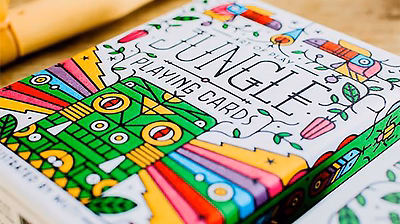 JUNGLE
PLAYING CARDS